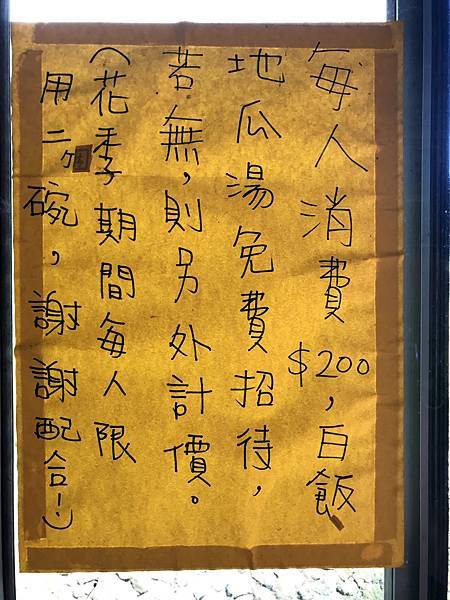 每人消費$200，白飯
地瓜湯免費招待，
若無，則另外計價。
（花季期間每人限
用二個碗，謝謝配合！）